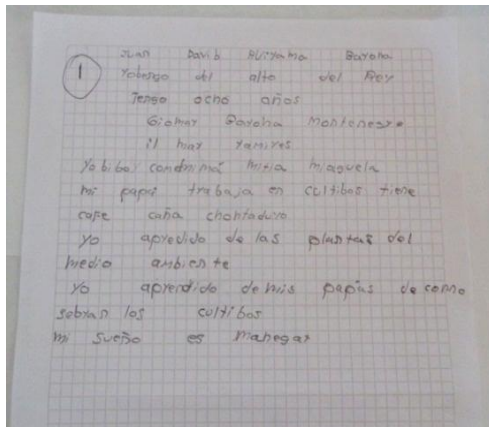 1
Juan David Buitramo Barona
Yobengo del alto del Rey
Tengo ocho años
Giomar Barona Montenegro
il mar ramires
Yo bibo con mi ma mitia miaguela
mi papa trabaja en cultibos tiene
cafe caña chontaduro
yo apredido de las plantas del
medio ambiente
yo aprendido de mis papas de como
sebran los cultibos
mi sueño es manegar